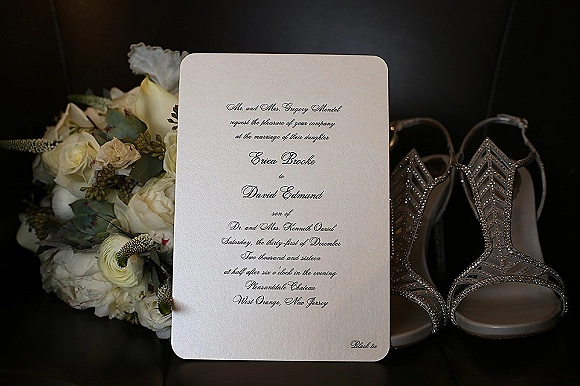 Mr. and Mrs. Gregory Mendel
request the pleasure of your company
at the marriage of their daughter
Erica Brooke
to
David Edmund
son of
Dr. and Mrs. Kenneth David
Saturday, the thirty-first of December
Two thousand and sixteen
at half after six o'clock in the evening
Pleasantdale Chateau
West Orange, New Jersey
Black tie